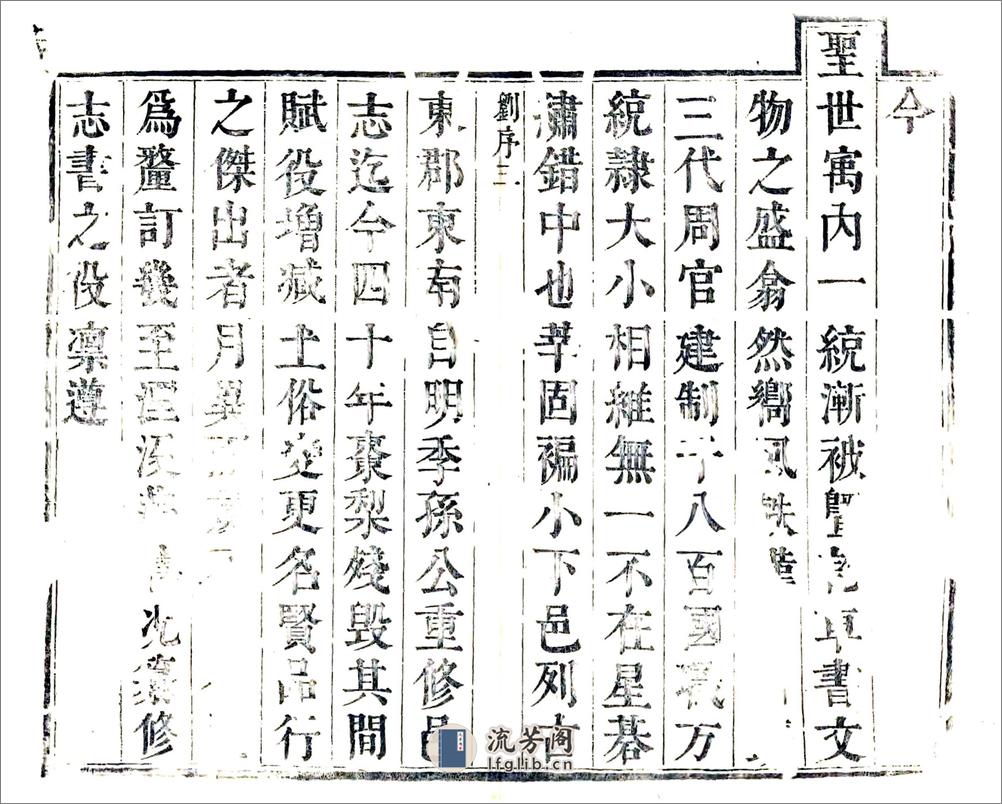 今
聖世寓内一統漸被曁訖車書文
物之盛翕然嚮風
三代周官建制千八百國職万
統隷大小相維無一不在星碁
繡錯中也莘固褊小下邑列古
劉序 三
東郡東南自明季孫公重修邑
志迄今四十年棗梨殘毁其間
賦役増減土俗变更名賢品行
之傑出者月異而
爲釐訂幾至湮没况纂修
志書之役凛遵
流芳阁
lfglib.cn